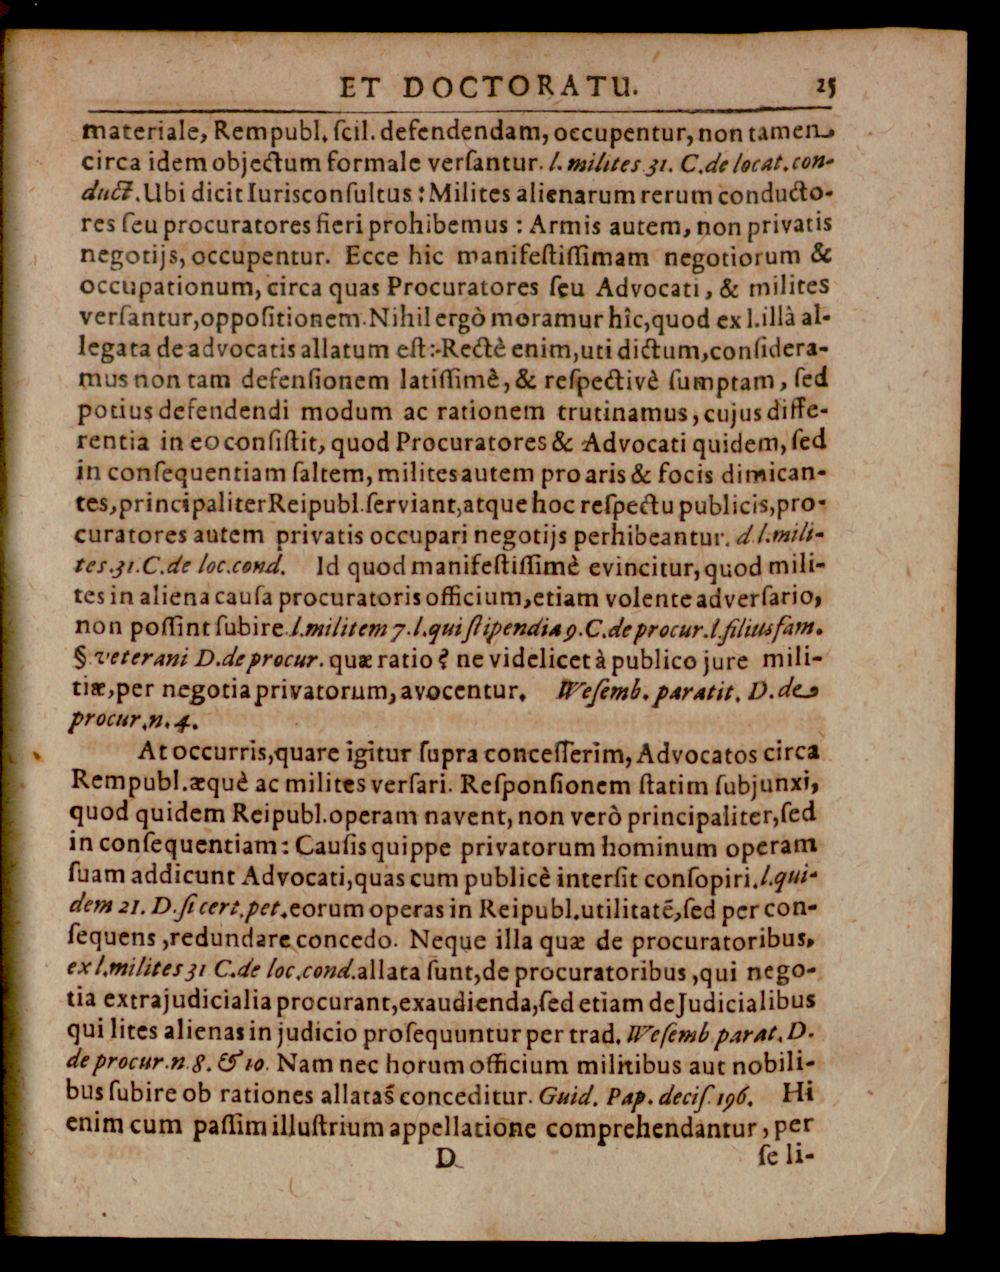 ET DOCTORATU. 25
materiale, Rempubl. ſcil. defendendam, occupentur, non tamen
circa idem objectum formale verſantur. l. milites 31. C. de locat. con-
duct. Ubi dicit Iurisconſultus : Milites alienarum rerum conducto-
res ſeu procuratores fieri prohibemus : Armis autem, non privatis
negotijs, occupentur. Ecce hic manifeſtiſſimam negotiorum &
occupationum, circa quas Procuratores ſeu Advocati, & milites
verſantur, oppoſitionem. Nihil ergò moramur hîc, quod ex l. illà al-
legata de advocatis allatum eſt :- Rectè enim, uti dictum, conſidera-
mus non tam defenſionem latiſſimè, & reſpectivè ſumptam, ſed
potius defendendi modum ac rationem trutinamus, cujus diffe-
rentia in eo conſiſtit, quod Procuratores & Advocati quidem, ſed
in conſequentiam ſaltem, milites autem pro aris & focis dimican-
tes, principaliter Reipubl. ſerviant, atque hoc reſpectu publicis, pro-
curatores autem privatis occupari negotijs perhibeantur. d l. mili-
tes. 31. C. de loc. cond. Id quod manifeſtiſſimè evincitur, quod mili-
tes in aliena cauſa procuratoris officium, etiam volente adverſario,
non poſſint ſubire l. militem 7. l. qui ſtipendia 9. C. de procur. l. filiusfam.
§ veterani D. de procur. quæ ratio ? ne videlicet à publico jure mili-
tiæ, per negotia privatorum, avocentur. Weſemb. paratit. D. de
procur. n. 4.
At occurris, quare igitur ſupra conceſſerim, Advocatos circa
Rempubl. æquè ac milites verſari. Reſponſionem ſtatim ſubjunxi,
quod quidem Reipubl. operam navent, non verò principaliter, ſed
in conſequentiam : Cauſis quippe privatorum hominum operam
ſuam addicunt Advocati, quas cum publicè interſit conſopiri. l. qui-
dem 21. D. ſi cert. pet. eorum operas in Reipubl. utilitatẽ, ſed per con-
ſequens, redundare concedo. Neque illa quæ de procuratoribus,
ex l. milites 31 C. de loc. cond. allata ſunt, de procuratoribus, qui nego-
tia extrajudicialia procurant, exaudienda, ſed etiam de Judicialibus
qui lites alienas in judicio proſequuntur per trad. Weſemb parat. D.
de procur. n. 8. & 10. Nam nec horum officium militibus aut nobili-
bus ſubire ob rationes allatas conceditur. Guid. Pap. deciſ. 196. Hi
enim cum paſſim illuſtrium appellatione comprehendantur, per
D ſe li-